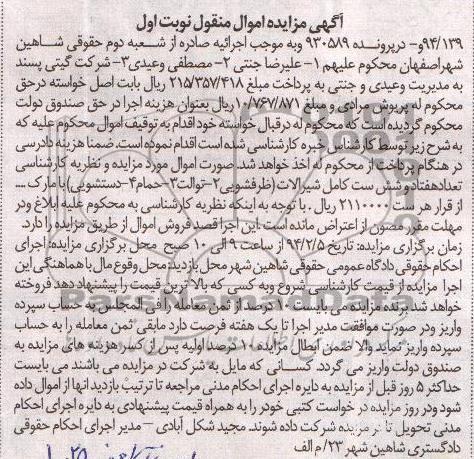 آگهی مزایده اموال منقول نوبت اول
۹۴/۱۳۹و- درپرونده ۹۳۰۵۸۹ وبه موجب اجرائیه صادره از شعبه دوم حقوقی شاهین
شهراصفهان محکوم علیهم ۱- علیرضا جنتی ۲- مصطفی وعیدی۳- شرکت گیتی پسند
به مدیریت وعیدی و جنتی به پرداخت مبلغ ۲۱۵/۳۵۷/۴۱۸ ریال بابت اصل خواسته درحق
محکوم له پریوش مرادی و مبلغ ۱۰/۷۶۷/۸۷۱ریال بعنوان هزینه اجرا در حق صندوق دولت
محکوم گردیده است که محکوم له درقبال خواسته خود اقدام به توقیف اموال محکوم علیه که
به شرح زیر توسط کارشناس خبره کارشناسی شده است اقدام نموده است. ضمنا هزینه دادرسی
در هنگام پرداخت از محکوم له اخذ خواهد شد. صورت اموال مورد مزایده و نظریه کارشناسی
تعدادهفتادو شش ست کامل شیرالات (ظرفشویی۲-توالت۳-حمام۴-دستشویی) با مارک ....
از قرار هر ست ۲۱۱۰۰۰۰ ریال . با توجه به اینکه نظریه کارشناسی به محکوم علیه ابلاغ ودر
مهلت مقرر مصون از اعتراض مانده است .این اجرا قصد فروش اموال از طریق مزایده را دارد.
زمان برگزاری مزایده: تاریخ ۹۴/۲/۵ از ساعت ۹ الی ۱۰ صبح محل برگزاری مزایده: اجرای
احکام حقوقی دادگاه عمومی حقوقی شاهین شهر محل بازدید: محل وقوع مال با هماهنگی این
اجرا مزایده از قیمت کارشناسی شروع وبه کسی که بالاترین قیمت را پیشنهاد دهد فروخته
خواهد شد برنده مزایده می بایست ۱۰ درصد از ثمن معامله را فی المجلس به حساب سپرده
واریز ودر صورت موافقت مدیر اجرا تا یک هفته فرصت دارد مابقی ثمن معامله را به حساب
سپرده واریز نماید والا ضمن ابطال مزایده ۱۰ درصد اولیه پس از کسر هزینه های مزایده به
صندوق دولت واریز می گردد. کسانی که مایل به شرکت در مزایده می باشند می بایست
حداکثر ۵ روز قبل از مزایده به دایره اجرای احکام مدنی مراجعه تا ترتیب بازدید انها از اموال داده
شود ودر روز مزایده در خواست کتبی خودر را به همراه قیمت پیشنهادی به دایره اجرای احکام
مدنی تحویل تا در مزیده شرکت داده شوند. مجید شکل آبادی – مدیر اجرای احکام حقوقی
دادگستری شاهین شهر ۲۳/م الف